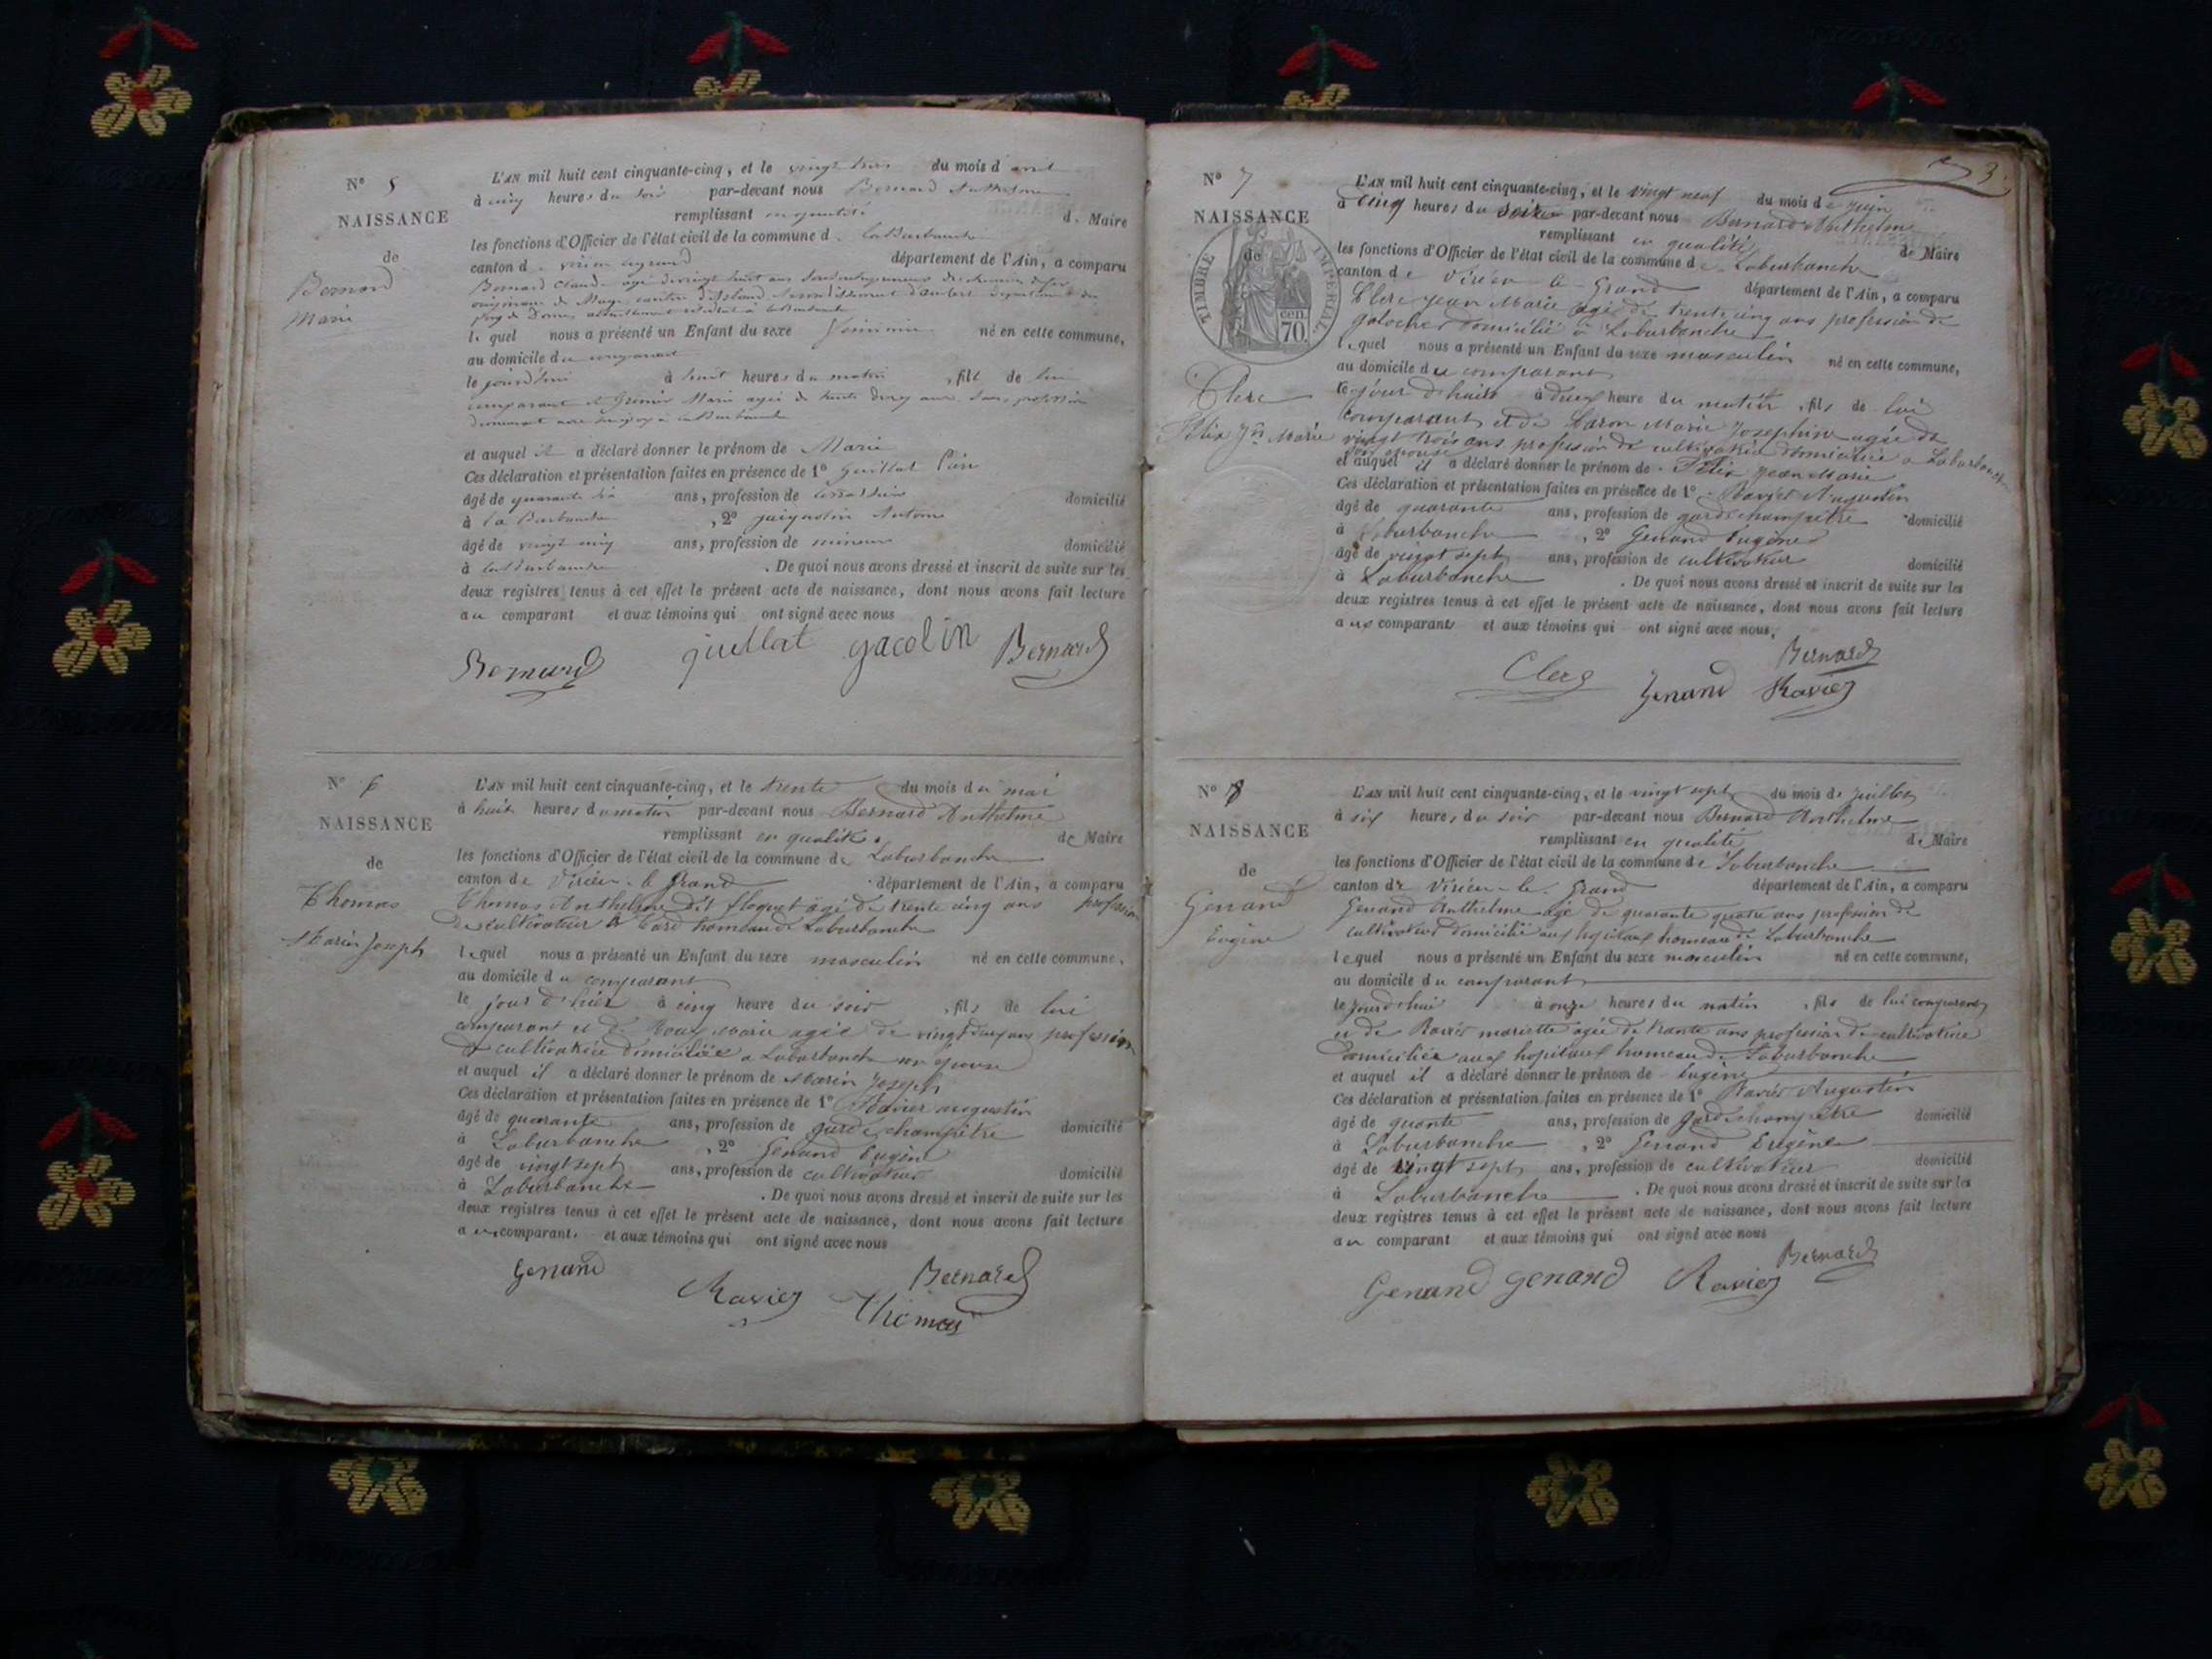 N° 5
NAISSANCE
de
Bernard
Marie
L'AN mil huit cent cinquante-cinq, et le vingt trois du mois d'avril
à cinq heures du soir par-devant nous Bernard Anthelme
remplissant en qualité de Maire
les fonctions d'Officier de l'état civil de la commune de Laburbanche
canton de virieu legrand département de l'Ain, a comparu
Bernard Claude agé de vingt huit ans
originaire de canton d'arrondissement d'ambert département du
puy de Dome, actuellement
lequel nous a présenté un Enfant du sexe feminin né en cette commune,
au domicile du comparant
le jourd'hui à huit heures du matin, fille de lui
comparant et Marie agée de ans, sans profession
et auquel il a déclaré donner le prénom de Marie
Ces déclaration et présentation faites en présence de 1° guillot
âgé de quarante ans, profession de domicilié
à la Burbanche, 2° Antoine
âgé de vingt cinq ans, profession de mineur domicilié
à la Burbanche. De quoi nous avons dressé et inscrit de suite sur les
deux registres tenus à cet effet le présent acte de naissance, dont nous avons fait lecture
au comparant et aux témoins qui ont signé avec nous
Bernard guillot gacolin Bernard
N° 6
NAISSANCE
de
Thomas
Marin Joseph
L'AN mil huit cent cinquante-cinq, et le trente du mois de mai
à huit heures du matin par-devant nous Bernard Anthelme
remplissant en qualité de Maire
les fonctions d'Officier de l'état civil de la commune de Laburbanche
canton de Virieu-le Grand département de l'Ain, a comparu
Thomas Anthelme dit floquet agé de trente cinq ans profession
de cultivateur hameau de Laburbanche
lequel nous a présenté un Enfant du sexe masculin né en cette commune,
au domicile du comparant
le jour d'hier à cinq heure du soir, fils de lui
comparant et de Roux Marie agée de ans profession
de cultivatrice domiciliée a Laburbanche son épouse
et auquel il a déclaré donner le prénom de Marin Joseph
Ces déclaration et présentation faites en présence de 1° Ravier augustin
âgé de quarante ans, profession de garde champêtre domicilié
à Laburbanche, 2° Genand Eugène
âgé de vingt sept ans, profession de cultivateur domicilié
à Laburbanche. De quoi nous avons dressé et inscrit de suite sur les
deux registres tenus à cet effet le présent acte de naissance, dont nous avons fait lecture
au comparant et aux témoins qui ont signé avec nous
Genand Ravier Bernard
Thomas
3
N° 7
NAISSANCE
de
TIMBRE IMPERIAL
cen
70.
Clerc
Félix Jn Marie
L'AN mil huit cent cinquante-cinq, et le vingt neuf du mois de juin
à cinq heures du soir par-devant nous Bernard Anthelme
remplissant en qualité de Maire
les fonctions d'Officier de l'état civil de la commune de Laburbanche
canton de Virieu-le-Grand département de l'Ain, a comparu
Clerc Jean Marie agé de trente cinq ans profession de
galocher domicilié à Laburbanche
lequel nous a présenté un Enfant du sexe masculin né en cette commune,
au domicile du comparant
le jour d'huis à deux heure du matin, fils de lui
comparant et de Caron Marie Josephine agée de
vingt trois ans profession de cultivatrice domiciliée a Laburbanche
son épouse
et auquel il a déclaré donner le prénom de Félix Jean Marie
Ces déclaration et présentation faites en présence de 1° Ravier Augustin
âgé de quarante ans, profession de garde champêtre domicilié
à Laburbanche, 2° Genand Eugène
âgé de vingt sept ans, profession de cultivateur domicilié
à Laburbanche. De quoi nous avons dressé et inscrit de suite sur les
deux registres tenus à cet effet le présent acte de naissance, dont nous avons fait lecture
aux comparants et aux témoins qui ont signé avec nous,
Bernard
Clerc Genand Ravier
N° 8
NAISSANCE
de
Genand
Eugène
L'AN mil huit cent cinquante-cinq, et le vingt sept du mois de juillet
à six heures du soir par-devant nous Bernard Anthelme
remplissant en qualité de Maire
les fonctions d'Officier de l'état civil de la commune de Laburbanche
canton de Virieu-le-Grand département de l'Ain, a comparu
Genand Anthelme agé de quarante quatre ans profession de
cultivateur domicilié aux hopitaux hameau de Laburbanche
lequel nous a présenté un Enfant du sexe masculin né en cette commune,
au domicile du comparant
le jourd'hui à onze heures du matin, fils de lui comparant
et de Ravier mariette agée de trante ans profession de cultivatrice
domiciliée aux hopitaux hameau de Laburbanche
et auquel il a déclaré donner le prénom de Eugène
Ces déclaration et présentation faites en présence de 1° Ravier Augustin
âgé de quante ans, profession de Gardechampetre domicilié
à Laburbanche, 2° Genand Eugène
âgé de vingt sept ans, profession de cultivateur domicilié
à Laburbanche. De quoi nous avons dressé et inscrit de suite sur les
deux registres tenus à cet effet le présent acte de naissance, dont nous avons fait lecture
au comparant et aux témoins qui ont signé avec nous
Bernard
Genand genand Ravier